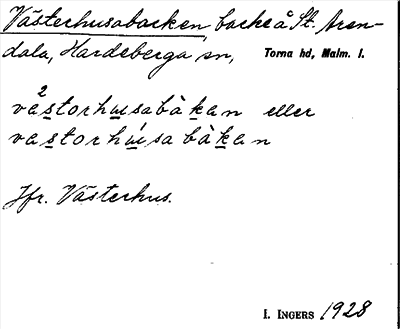 Västerhusabacken, backe å St. Aren-
dala, Hardeberga sn, Torna hd, Malm. l.
va²storhusabàkan eller
vastorhúsabàkan
Jfr. Västerhus.
I. INGERS 1928